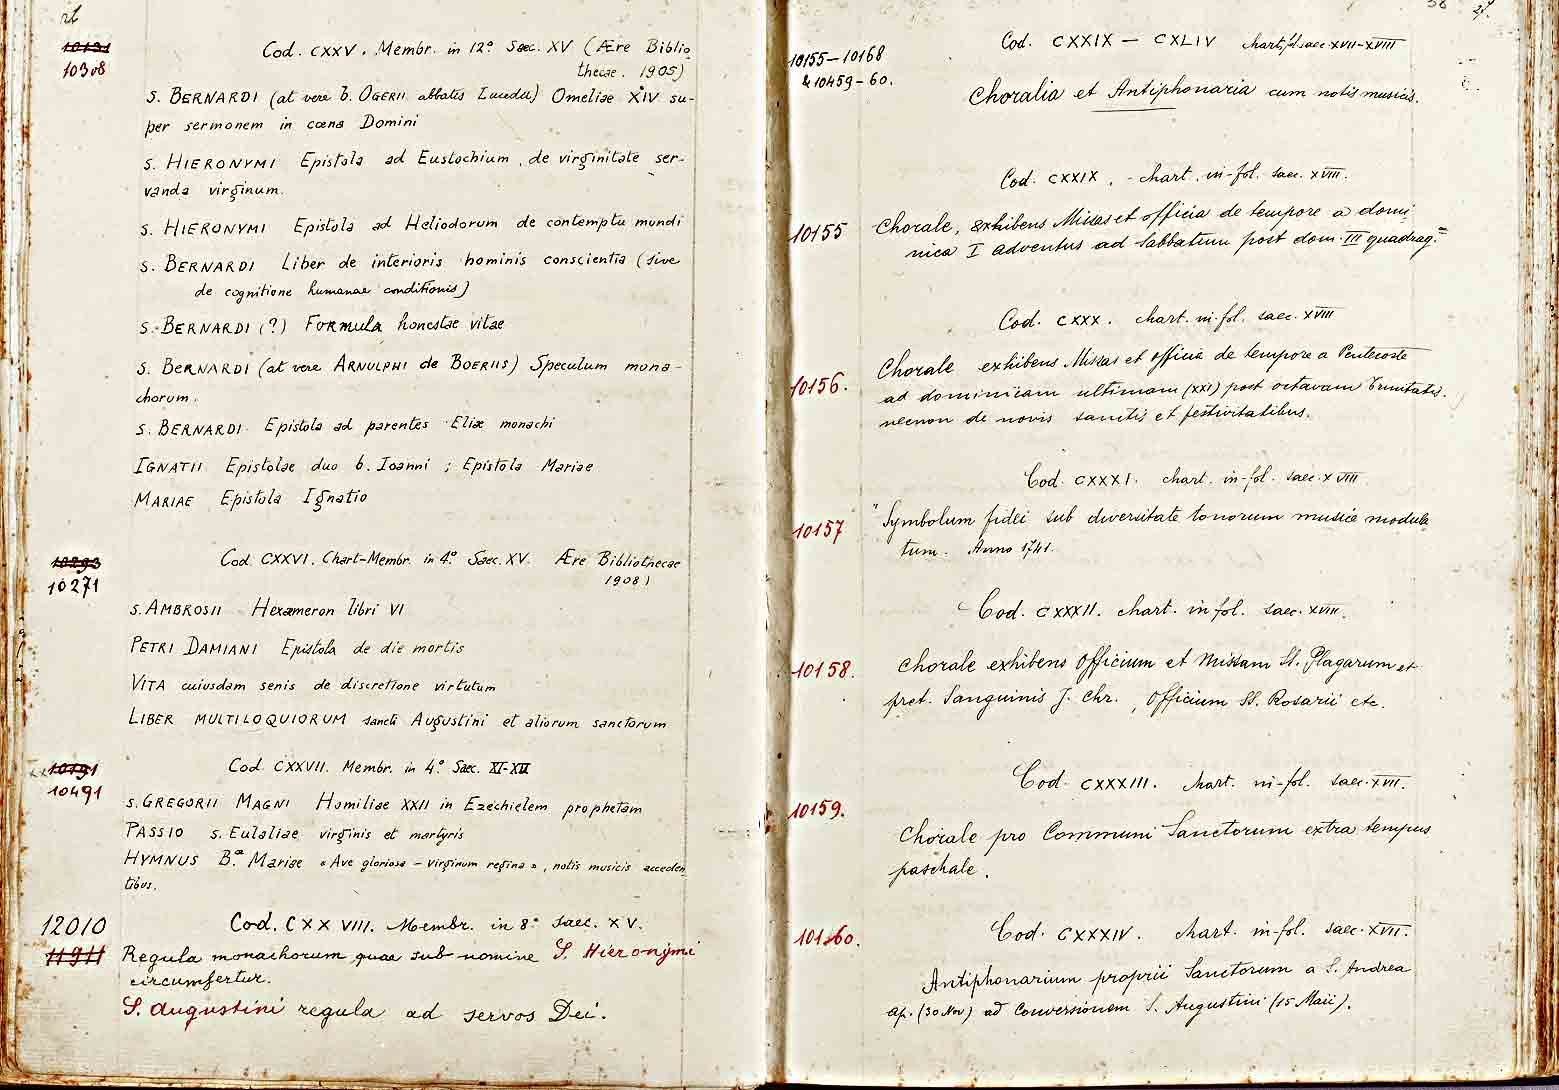 10131
10308
Cod. CXXV. Membr. in 12° Saec. XV (Ære Biblio
thecae. 1905)
S. BERNARDI (at vere b. OGERII abbatis Lucedii) Omeliae XIV su-
per sermonem in cœna Domini
S. HIERONYMI Epistola ad Eustochium, de virginitate ser-
vanda virginum.
S. HIERONYMI Epistola ad Heliodorum de contemptu mundi
S. BERNARDI Liber de interioris hominis conscientia (sive
de cognitione humanae conditionis)
S. BERNARDI (?) Formula honestae vitae
S. BERNARDI (at vere ARNULPHI de BOERIIS) Speculum mona-
chorum.
S. BERNARDI Epistola ad parentes Eliæ monachi
IGNATII Epistolae duo b. Ioanni ; Epistola Mariae
MARIAE Epistola Ignatio
10293
10271
Cod. CXXVI. Chart-Membr. in 4.° Saec. XV. Ære Bibliothecae
1908)
S. AMBROSII Hexæmeron libri VI
PETRI DAMIANI Epistola de die mortis
VITA cuiusdam senis de discretione virtutum
LIBER MULTILOQUIORUM sancti Augustini et aliorum sanctorum
10191
10491
Cod. CXXVII. Membr. in 4.° Saec. XI-XII
S. GREGORII MAGNI Homiliae XXII in Ezechielem prophetam
PASSIO S. Eulaliae virginis et martyris
HYMNUS B.ae Mariae « Ave gloriosa - virginum regina », notis musicis acceden
tibus.
12010
11911
Cod. CXXVIII. Membr. in 8° saec. XV.
Regula monachorum quae sub nomine S. Hieronymi
circumfertur.
S. Augustini regula ad servos Dei.
10155-10168
& 10459-60.
Cod. CXXIX - CXLIV chart. fol. saec XVII-XVIII
Choralia et Antiphonaria cum notis musicis.
Cod. CXXIX. - chart. in-fol. saec. XVIII.
10155 Chorale, exhibens Missas et officia de tempore a domi
nica I adventus ad Sabbatum post dom. III quadrag.ae
Cod. CXXX. chart. in-fol. saec. XVIII
10156. Chorale exhibens Missas et officia de tempore a Pentecoste
ad dominicam ultimam (XXI) post octavam Trinitatis.
necnon de novis sanctis et festivitatibus.
Cod. CXXXI. chart. in-fol. saec. XVIII.
10157 "Symbolum fidei sub diversitate tonorum musice modula
tum. Anno 1741.
Cod. CXXXII. chart. in fol. saec. XVIII.
10158. Chorale exhibens Officium et Missam SS. Plagarum et
pret. Sanguinis J. Chr., Officium SS. Rosarii etc.
Cod. CXXXIII. chart. in-fol. saec. XVII.
10159. Chorale pro Communi Sanctorum extra tempus
paschale.
Cod. CXXXIV. chart. in-fol. saec. XVII.
10160. Antiphonarium proprii Sanctorum a S. Andrea
ap. (30 Nov) ad Conversionem S. Augustini (15 Maii).